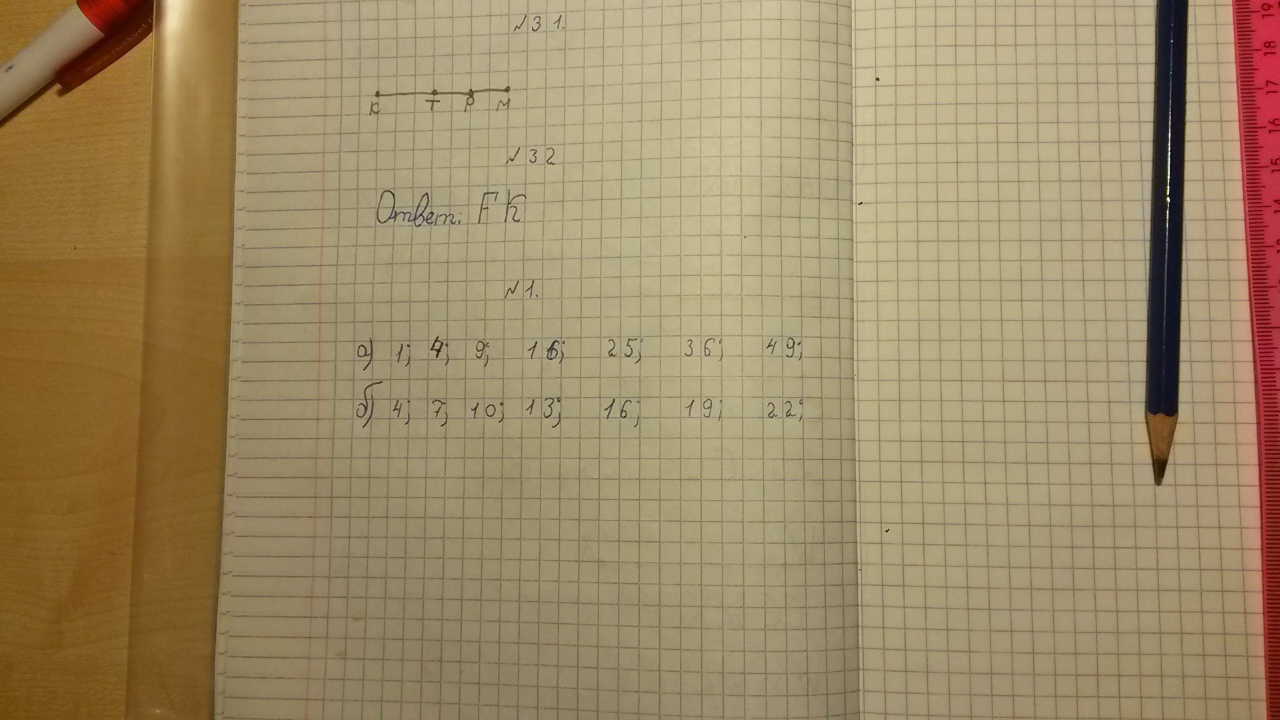 №31.
К Т Р М
№32
Ответ: FK
№1.
а) 1; 4; 9; 16; 25; 36; 49;
б) 4; 7; 10; 13; 16; 19; 22;
19
18
17
16
15
14
13